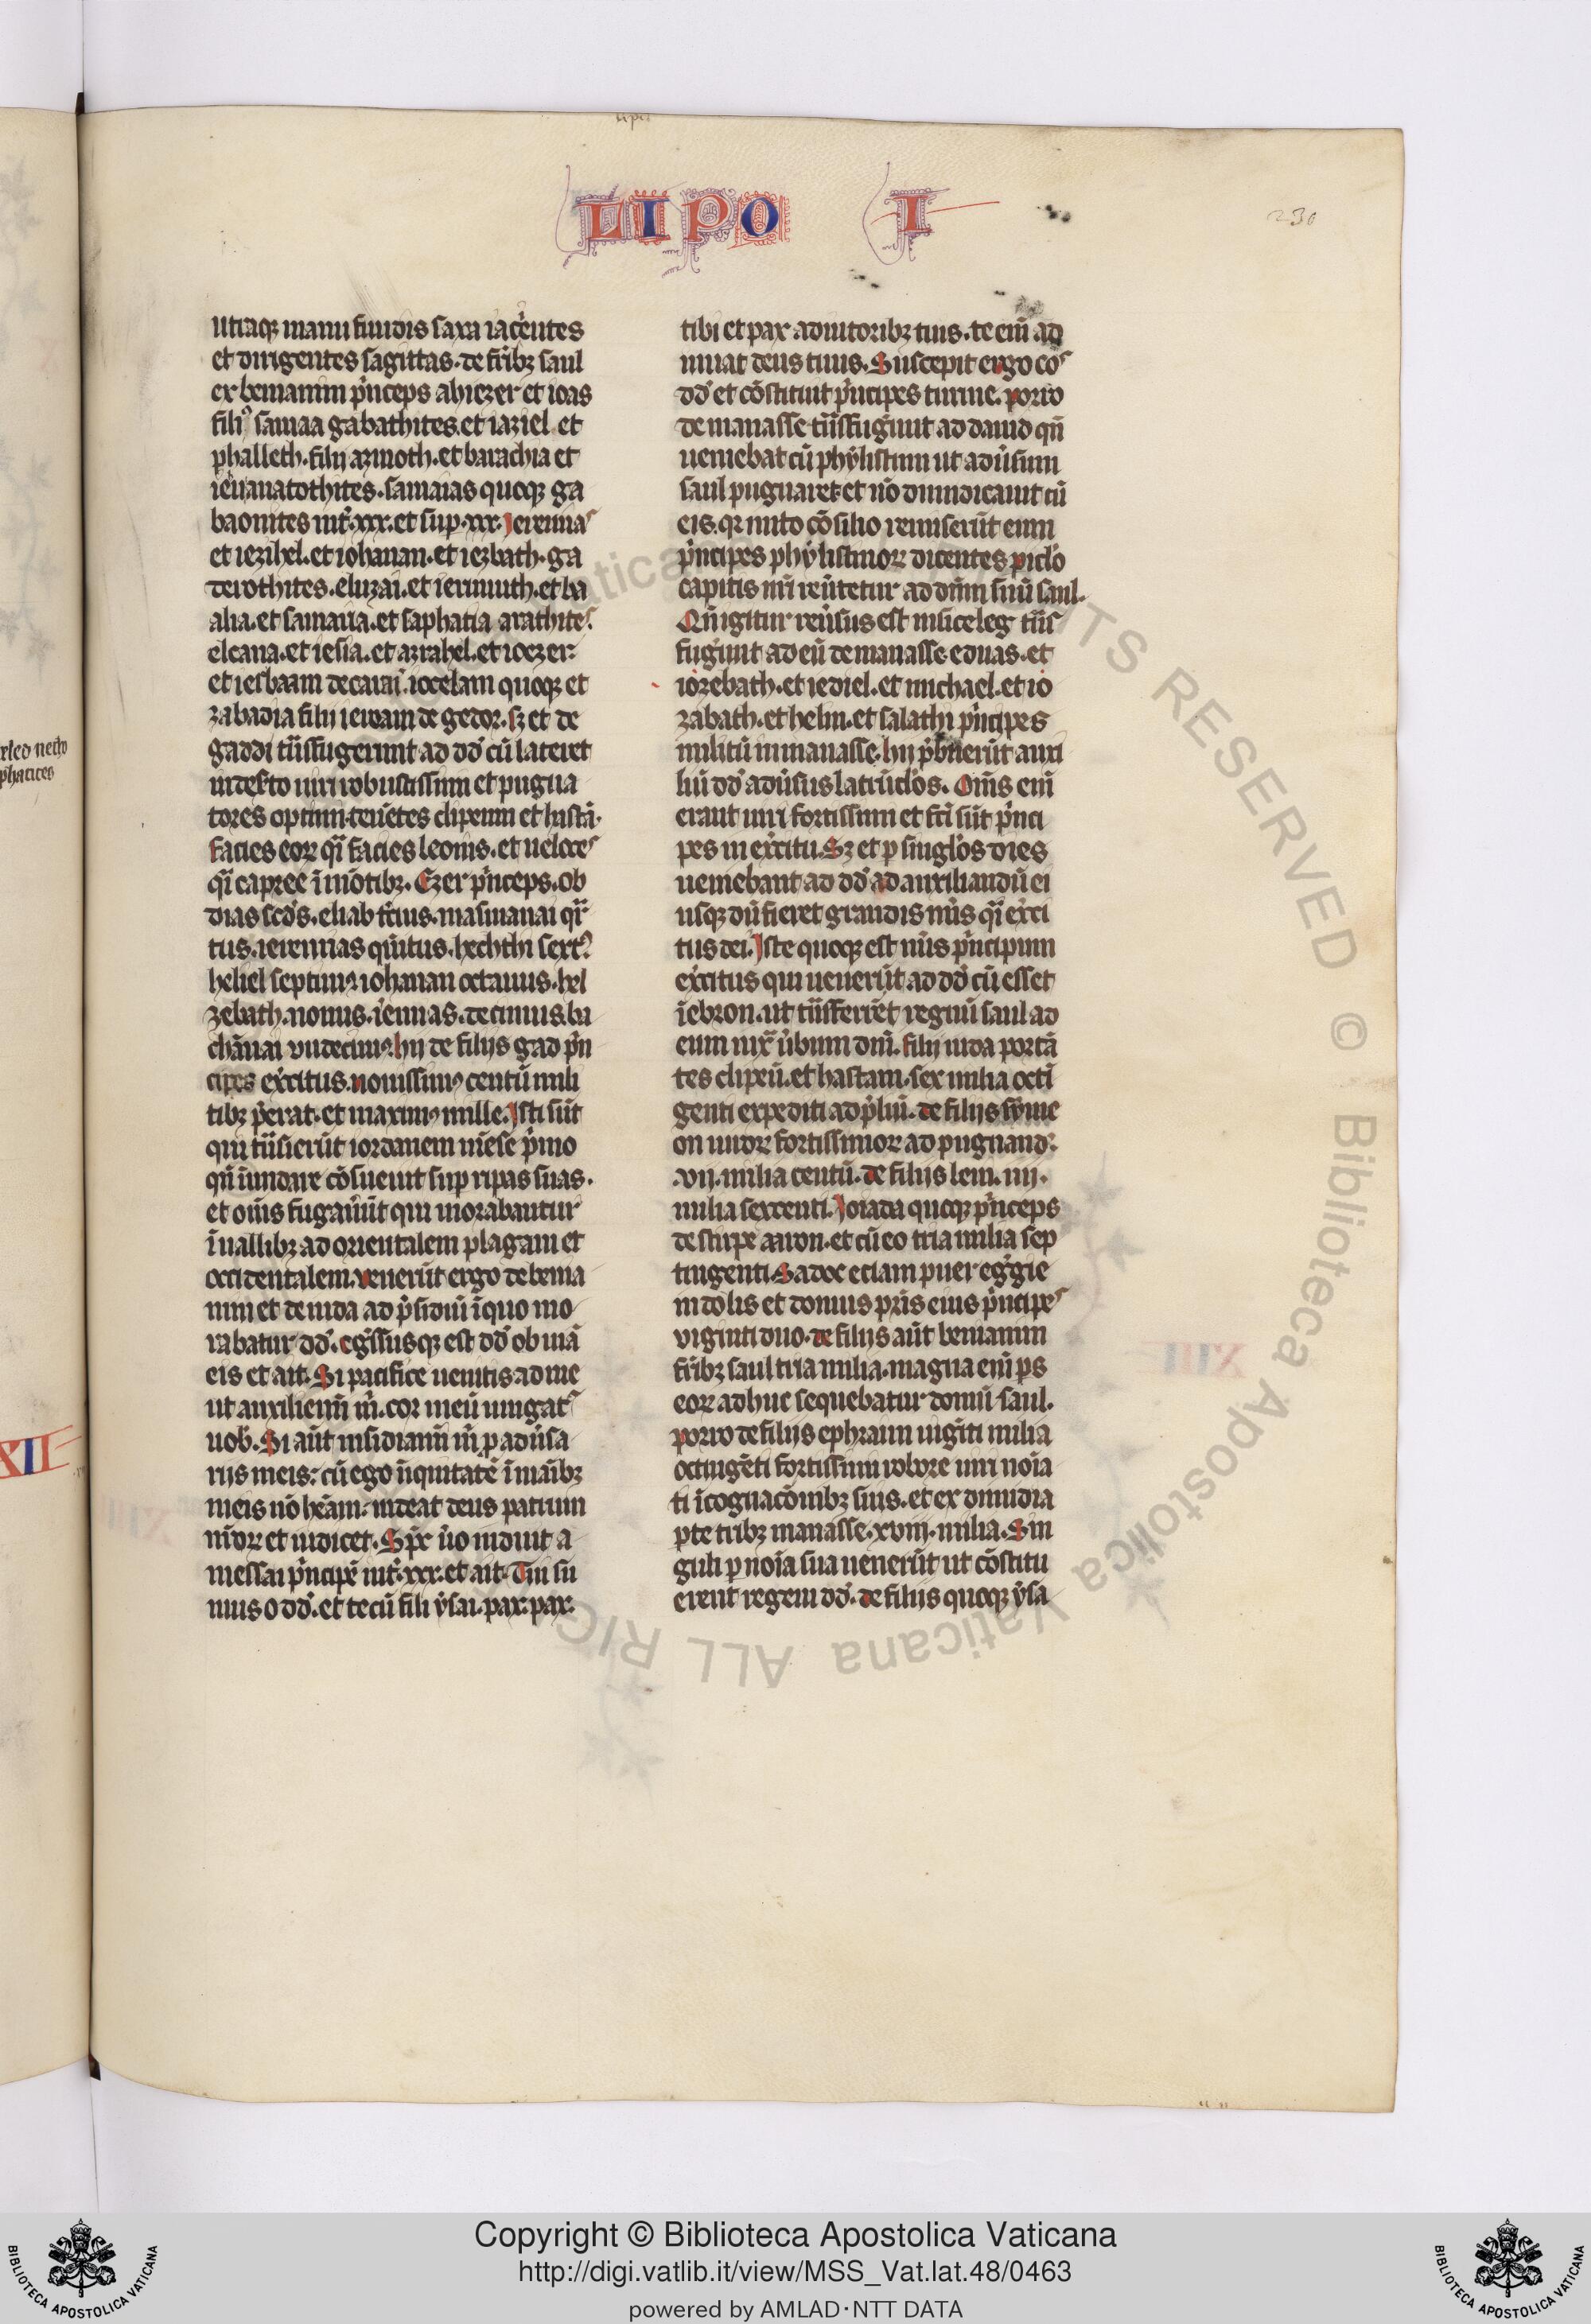 LIPO I
230
utraqꝫ manu fundis saxa iac̾entes
et dirigentes sagittas. de fr̄ibꝫ saul
ex beniamin p̾nceps ahiezer et ioas
filiꝰ samaa gabathites. et iaziel et
phalleth. filij azmoth. et barachia et
ieu anatothites. samaias quoqꝫ ga
baonites int̾. xxx. et sup. xxx. Jeremias
et iezihel. et iohanan. et iezbath. ga
derothites. eluzai. et ierimuth. et ba
alia. et samaria. et saphatia arathites.
elcana. et iesia. et azrahel. et ioezer.
et iesbaam de carai. ioelam quoqꝫ et
zabadia filij ieroam de gedor. sꝫ et de
gaddi tͣnsfugerunt ad dd̄ cū lateret
in des̾to uiri robustissimi et pugna
tores optimi. tenētes clipeum et hastā.
facies eoꝝ qͣi facies leonis. et ueloces
qͣi capree ī mōtibꝫ. Ezer p̾nceps. ob
dias scd̄s. eliab t̾cius. masmanai qͣr
tus. ieremias qͥntus. hechthi sextꝰ.
heliel septimꝰ iohanan octauus. hel
zebath. nonus. ieremias. decimus. ba
chānai undecimꝰ hij de filijs gad p̾n
cipes ex̾citus. nouissimꝰ centū mili
tibꝫ p̾erat. et maximꝰ mille. Jsti sūt
qui tͣnsierūt iordanem mēse p̾mo
qn̄ īundare cōsueuit sup ripas suas.
et om̄s fugau̾ūt qui morabantur
ī uallibꝫ ad orientalem plagam et
occidentalem. uenerūt ergo de benia
min et de iuda ad p̾sidiū ī quo mo
rabatur dd̄. egͥssusqꝫ est dd̄ obuiā
eis et ait. Si pacifice uenitis ad me
ut auxiliemī m̄. cor meū iungat̾
uob̄. Si aūt insidiamī m̄ p aduersa
rijs meis: cū ego īiquitatē ī manibꝫ
meis nō heām: uideat deus patrum
nr̄oꝝ et iudicet. Sp̄c ūo induit a
messai p̾ncipē int̾. xxx. et ait. Tui su
mus o dd̄. et tecū fili ysai. pax. pax.
tibi et pax adiutoribꝫ tuis. te eni ad
iuuat deus tuus. Suscepit ergo eos
dd̄ et cōstituit p̾ncipes turme. porro
de manasse tͣnsfug̾unt ad dauid qn̄
ueniebat cū phylistim ut adu̾sum
saul pugnaret. et nō dimicauit cū
eis. qꝛ inito cōsilio remiserūt eum
p̾ncipes phylistinoꝝ dicentes piclo
capitis nr̄i reu̾tetur ad dn̄m suū saul.
Qn̄ igitur reu̾sus est in siceleg tͣns
fug̾unt ad eū de manasse. ednas. et
iozebath. et iediel. et michael. et io
zabath. et heliu. et salathi p̾ncipes
militū in manasse. hij p̾buerūt auxi
liū dd̄ adu̾sus latrūclos. Om̄s eni
erant uiri fortissimi et fc̄i sūt p̾nci
pes in ex̾citu. Sꝫ et p singlos dies
ueniebant ad dd̄ ad auxiliandū ei
usqꝫ dū fieret grandis nūs qͣi ex̾ci
tus dei. Jste quoqꝫ est nūs p̾ncipum
ex̾citus qui uenerūt ad dd̄ cū esset
ī ebron. ut tͣnsferrēt regnū saul ad
eum iuxͣ u̾bum dn̄i. filij iuda portā
tes clipeū. et hastam. sex milia octi
genti expediti ad p̾liū. de filijs syme
on uiroꝝ fortissimoꝝ ad pugnand̄.
.vij. milia centū. de filijs leui. iiij.
milia sexcenti. Joiada quoqꝫ p̾nceps
de stirpe aaron. et cū eo tria milia sep
tingenti. Sadoc eciam puer eg̾gie
indolis et domus pr̄is eius p̾ncipes
viginti duo. de filijs aūt beniamin
fr̄ibꝫ saul tria milia. magna eni ps
eoꝝ adhuc sequebatur domū saul.
porro de filijs ephraim uigīti milia
octingēti fortissimi robore uiri noīa
ti ī cognacōnibꝫ suis. et ex dimidia
pte tribꝫ manasse. xviij. milia. Sin
guli p noīa sua uenerūt ut cōstitu
erent regem dd̄. de filijs quoqꝫ ysa
XII
Copyright © Biblioteca Apostolica Vaticana
http://digi.vatlib.it/view/MSS_Vat.lat.48/0463
powered by AMLAD·NTT DATA
BIBLIOTECA APOSTOLICA VATICANA
BIBLIOTECA APOSTOLICA VATICANA